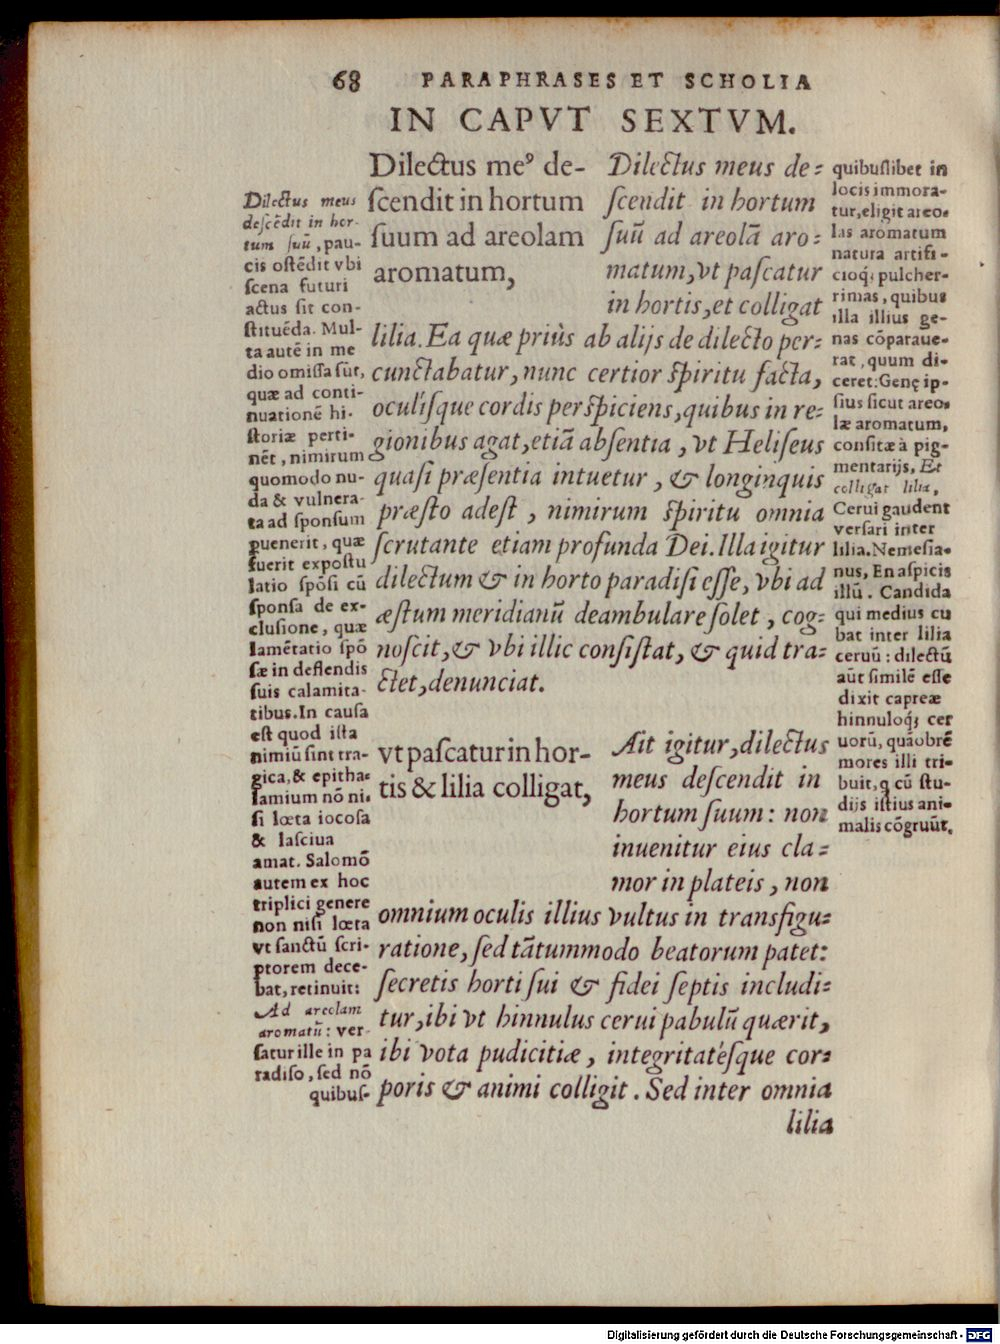 68 PARAPHRASES ET SCHOLIA
IN CAPVT SEXTVM.
Dilectus meꝰ de-
ſcendit in hortum
ſuum ad areolam
aromatum,
Dilectus meus de-
ſcendit in hortum
ſuū ad areolā aro-
matum, vt paſcatur
in hortis, et colligat
lilia. Ea quæ priùs ab alijs de dilecto per-
cunctabatur, nunc certior ſpiritu facta,
oculíſque cordis perſpiciens, quibus in re-
gionibus agat, etiā abſentia, vt Heliſeus
quaſi præſentia intuetur, & longinquis
præſto adeſt, nimirum ſpiritu omnia
ſcrutante etiam profunda Dei. Illa igitur
dilectum & in horto paradiſi eſſe, vbi ad
æſtum meridianū deambulare ſolet, cog-
noſcit, & vbi illic conſiſtat, & quid tra-
ctet, denunciat.
vt paſcatur in hor-
tis & lilia colligat,
Ait igitur, dilectus
meus deſcendit in
hortum ſuum: non
inuenitur eius cla-
mor in plateis, non
omnium oculis illius vultus in transfigu-
ratione, ſed tātummodo beatorum patet:
ſecretis horti ſui & fidei ſeptis includi-
tur, ibi vt hinnulus cerui pabulū quærit,
ibi vota pudicitiæ, integritatéſque cor-
poris & animi colligit. Sed inter omnia
lilia
Dilectus meus
deſcēdit in hor-
tum ſuū, pau-
cis oſtēdit vbi
ſcena futuri
actus ſit con-
ſtituēda. Mul-
ta autē in me
dio omiſſa ſūt,
quæ ad conti-
nuationē hi-
ſtoriæ perti-
nēt, nimirum
quomodo nu-
da & vulnera-
ta ad ſponſum
puenerit, quæ
fuerit expoſtu
latio ſpōſi cū
ſponſa de ex-
cluſione, quæ
lamētatio ſpō
ſæ in deflendis
ſuis calamita-
tibus. In cauſa
eſt quod iſta
nimiū ſint tra-
gica, & epitha-
lamium nō ni-
ſi lœta iocoſa
& laſciua
amat. Salomō
autem ex hoc
triplici genere
non niſi lœta
vt ſanctū ſcri-
ptorem dece-
bat, retinuit:
Ad areolam
aromatū: ver-
ſatur ille in pa
radiſo, ſed nō
quibuſ-
quibuſlibet in
locis immora-
tur, eligit areo-
las aromatum
natura artifi-
cioq́; pulcher-
rimas, quibus
illa illius ge-
nas cōparaue-
rat, quum di-
ceret: Genę ip-
ſius ſicut areo-
læ aromatum,
conſitæ à pig-
mentarijs, Et
colligat lilia,
Cerui gaudent
verſari inter
lilia. Nemeſia-
nus, En aſpicis
illū. Candida
qui medius cu
bat inter lilia
ceruū: dilectū
aūt ſimilē eſſe
dixit capreæ
hinnuloq́; cer
uorū, quāobrē
mores illi tri-
buit, q cū ſtu-
dijs iſtius ani-
malis cōgruūt,
Digitalisierung gefördert durch die Deutsche Forschungsgemeinschaft - DFG